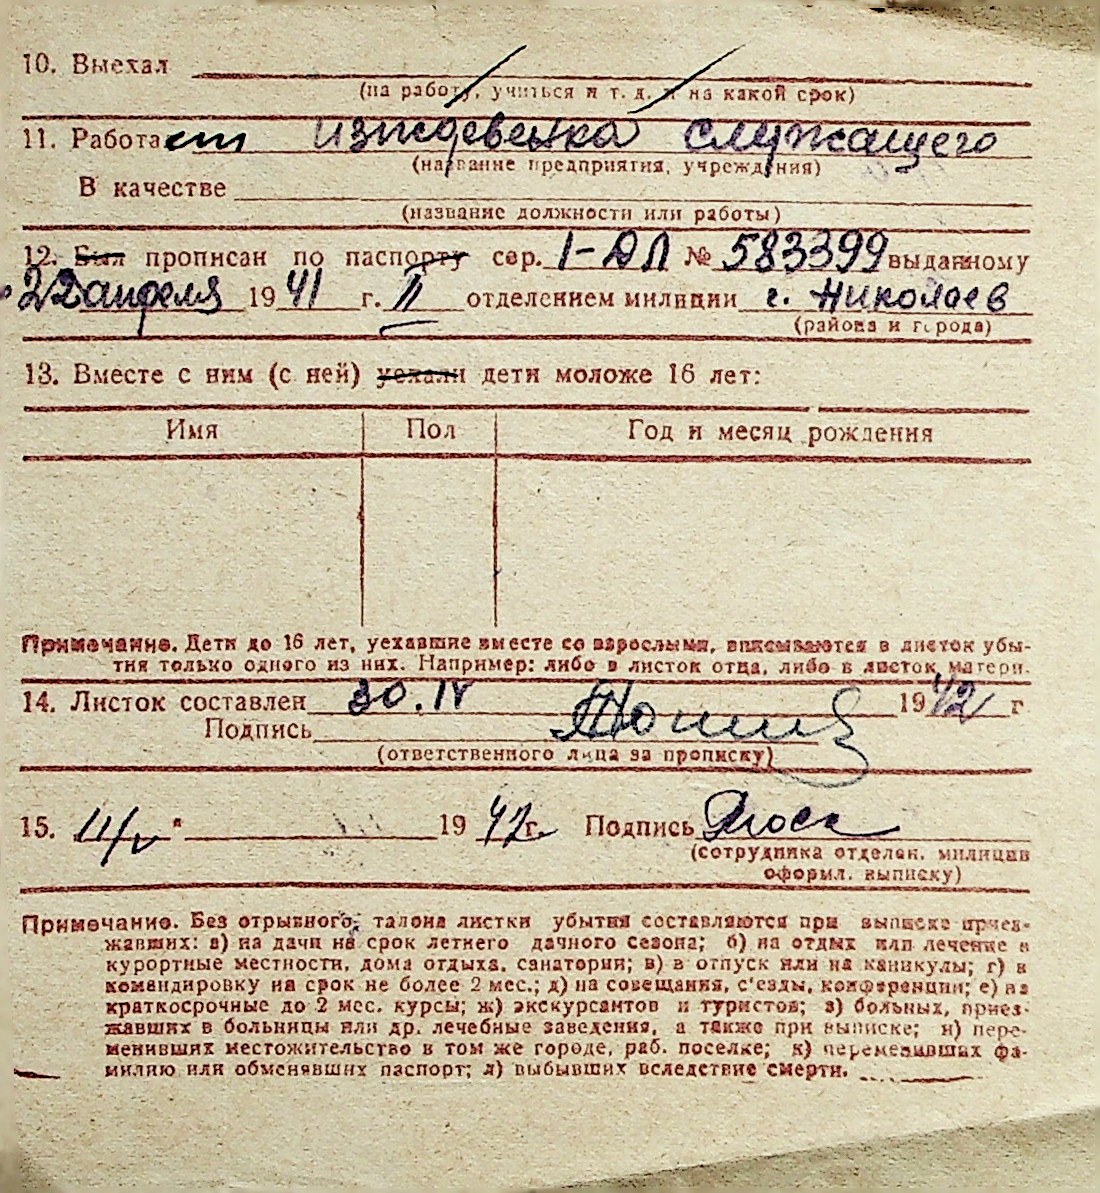 10. Выехал
(на работу, учиться и т. д. и на какой срок)
11. Работает иждевенка служащего
(название предприятия, учреждения)
В качестве
(название должности или работы)
12. Был прописан по паспорту сер. I-ДЛ № 583399 выданному
22 апреля 1941 г. II отделением милиции г. Николаев
(района и города)
13. Вместе с ним (с ней) уехали дети моложе 16 лет:
Имя Пол Год и месяц рождения
Примечание. Дети до 16 лет, уехавшие вместе со взрослыми, вписываются в листок убы-
тия только одного из них. Например: либо в листок отца, либо в листок матери.
14. Листок составлен 30.IV 1942 г
Подпись
(ответственного лица за прописку)
15. " 1942 г. Подпись
(сотрудника отделен. милиции
оформл. выписку)
Примечание. Без отрывного талона листки убытия составляются при выписке приез-
жавших: а) на дачи на срок летнего дачного сезона; б) на отдых или лечение в
курортные местности, дома отдыха, санатории; в) в отпуск или на каникулы; г) в
командировку на срок не более 2 мес.; д) на совещания, с'езды, конференции; е) на
краткосрочные до 2 мес. курсы; ж) экскурсантов и туристов; з) больных, приез-
жавших в больницы или др. лечебные заведения, а также при выписке; и) пере-
менивших местожительство в том же городе, раб. поселке; к) переменивших фа-
милию или обменявших паспорт; л) выбывших вследствие смерти.